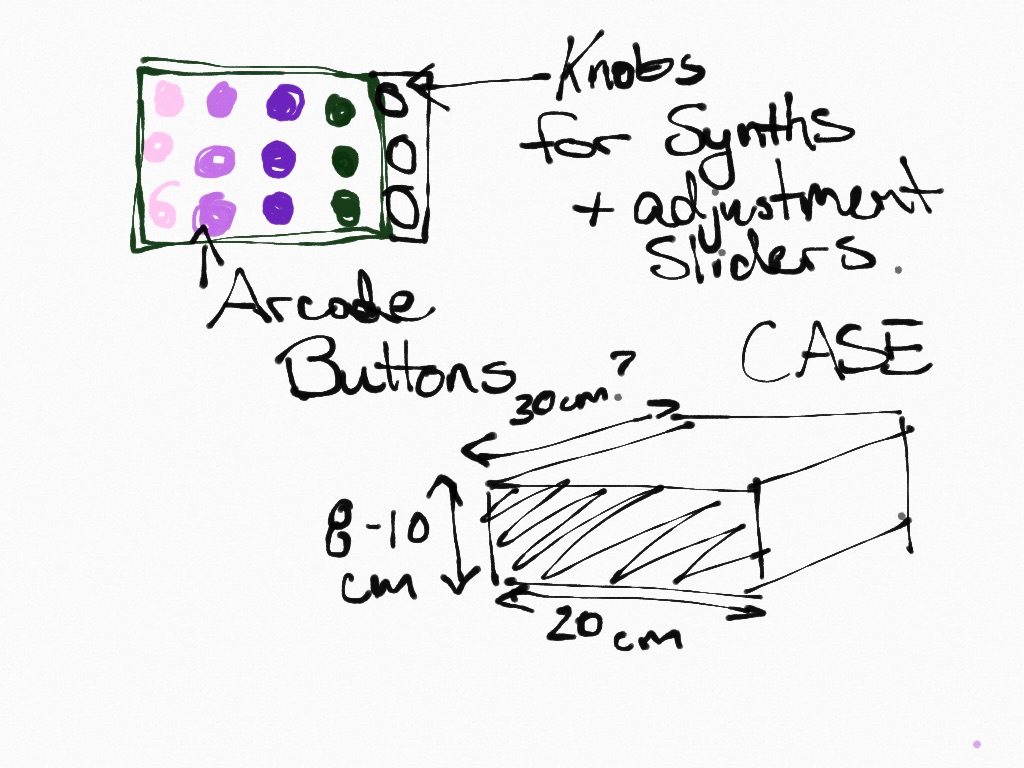 Knobs
for Synths
+ adjustment
Sliders.
Arcade
Buttons
CASE
30cm?
8-10
cm
20cm